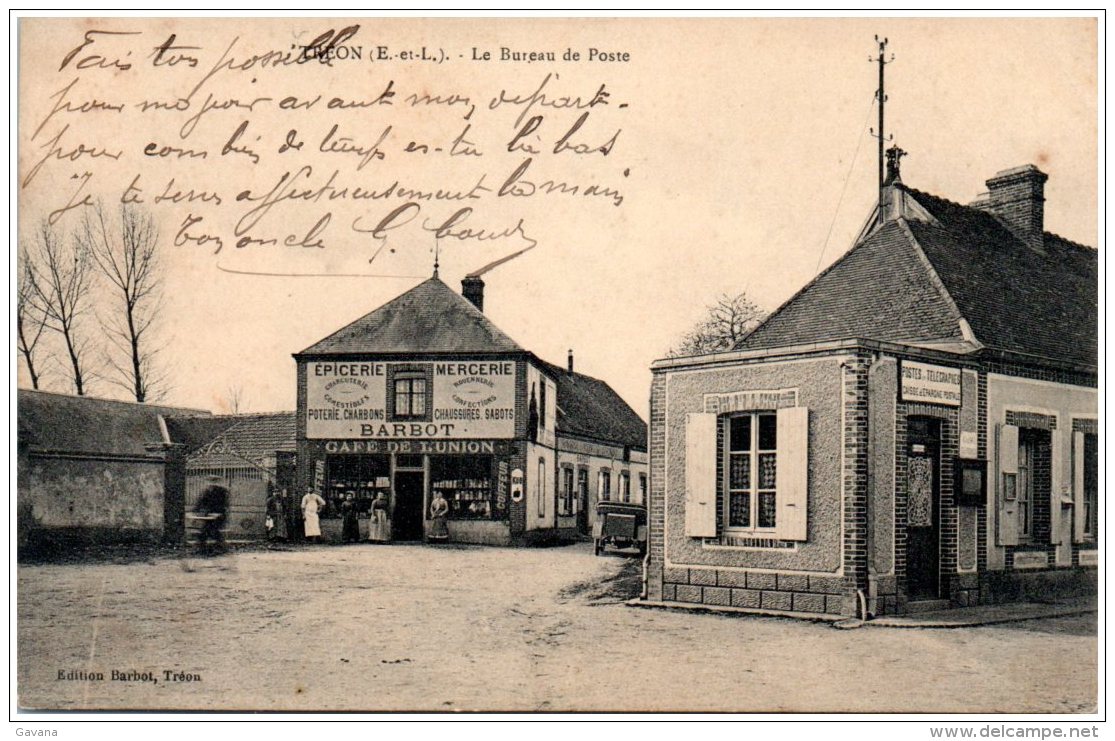 TRÉON (E.-et-L.). - Le Bureau de Poste
Fais ton possible
pour me voir avant mon départ.
pour combien de temps es-tu là bas
Je te serre affectueusement la main
Ton oncle G.
ÉPICERIE MERCERIE
CHARCUTERIE ROUENNERIE
COMESTIBLES CONFECTIONS
POTERIE, CHARBONS CHAUSSURES, SABOTS
BARBOT
CAFÉ DE L'UNION
POSTES ET TÉLÉGRAPHES
CAISSE D'ÉPARGNE POSTALE
Edition Barbot, Tréon
Gavana
www.delcampe.net